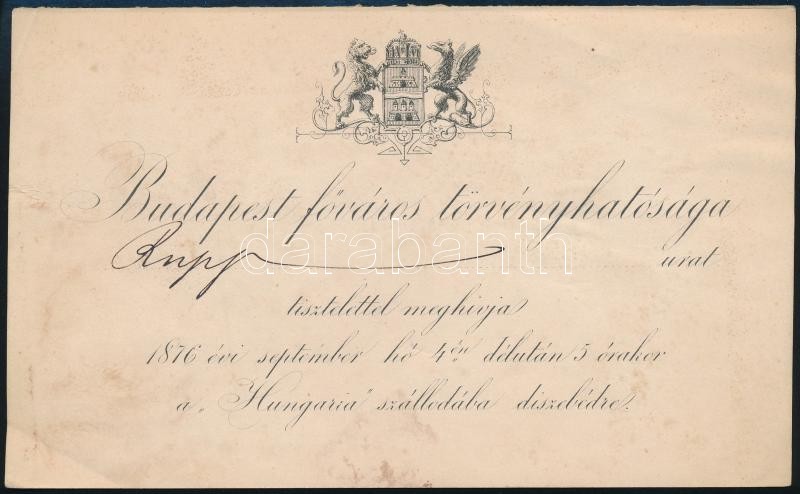 Budapest főváros törvényhatósága
Rupp urat
darabanth
tisztelettel meghivja
1876 évi september hó 4én délután 5 órakor
a „Hungaria" szállodába diszebédre.